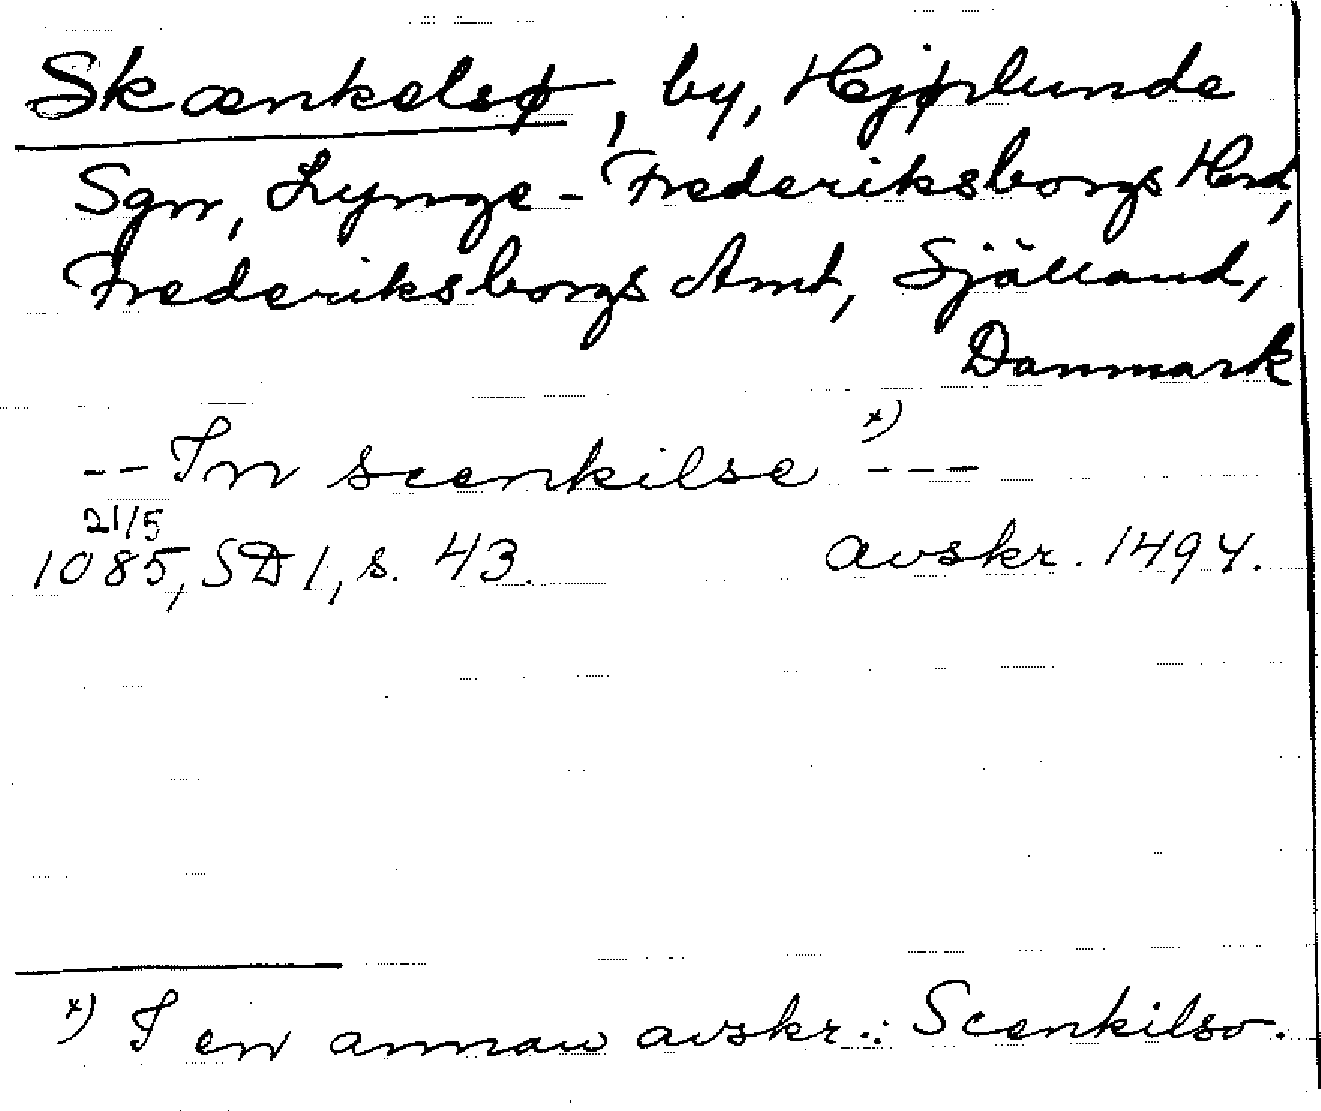 Skænkelsø, by, Hejplunde
Sgn, Lynge-Frederiksborgs Hrd,
Frederiksborgs Amt, Själland,
Danmark
--In scenkilse x) ---
21/5
1085, SD 1, s. 43. avskr. 1494.
x) I en annan avskr.: Scenkilso.